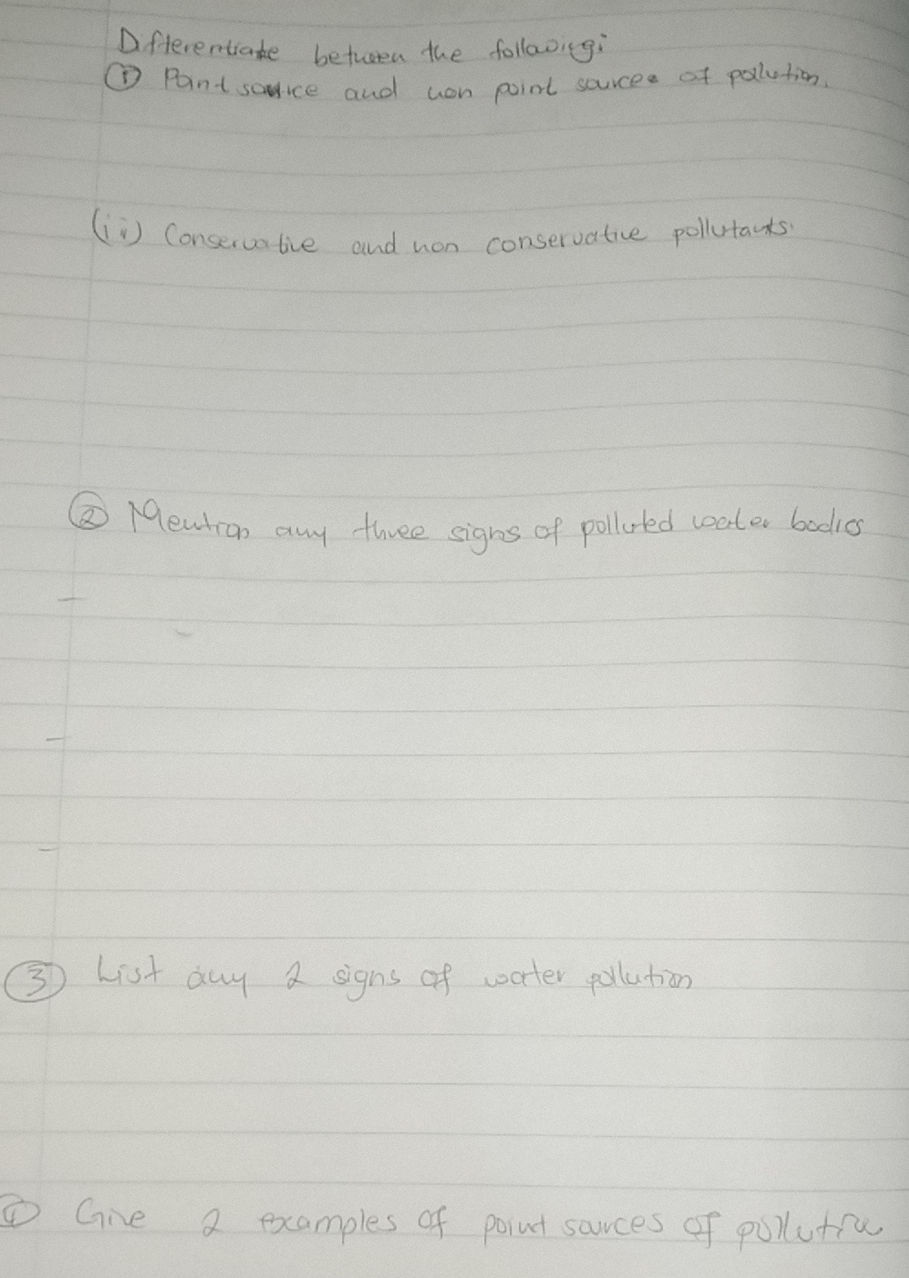 Differentiate between the following:
(i) Point source and non point sources of pollution.
(ii) Conservative and non conservative pollutants.
(2) Mention any three signs of polluted water bodies
-
-
-
(3) List any 2 signs of water pollution
(4) Give 2 examples of point sources of pollution